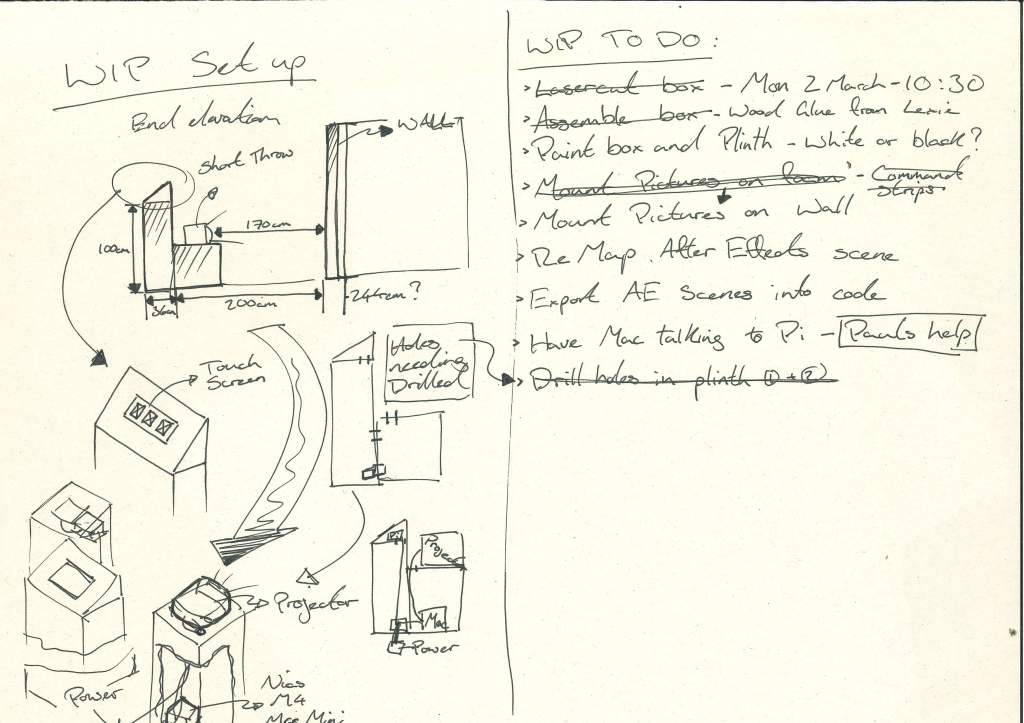 WIP Set up
End elevation
Short Throw
WALL
170cm
100cm
36cm
200cm
244cm?
Touch
Screen
Holes
needing
Drilled
Pi
Projector
Mac
Power
Projector
Power
Nics
M4
Mac Mini
WIP TO DO:
> Lasercut box - Mon 2 March - 10:30
> Assemble box - Wood Glue from Lexie
> Paint box and Plinth - White or black?
> Mount Pictures on foam - Command
Strips
> Mount Pictures on Wall
> Re Map After Effects scene
> Export AE Scenes into code
> Have Mac talking to Pi - Pauls help
> Drill holes in plinth ① + ②